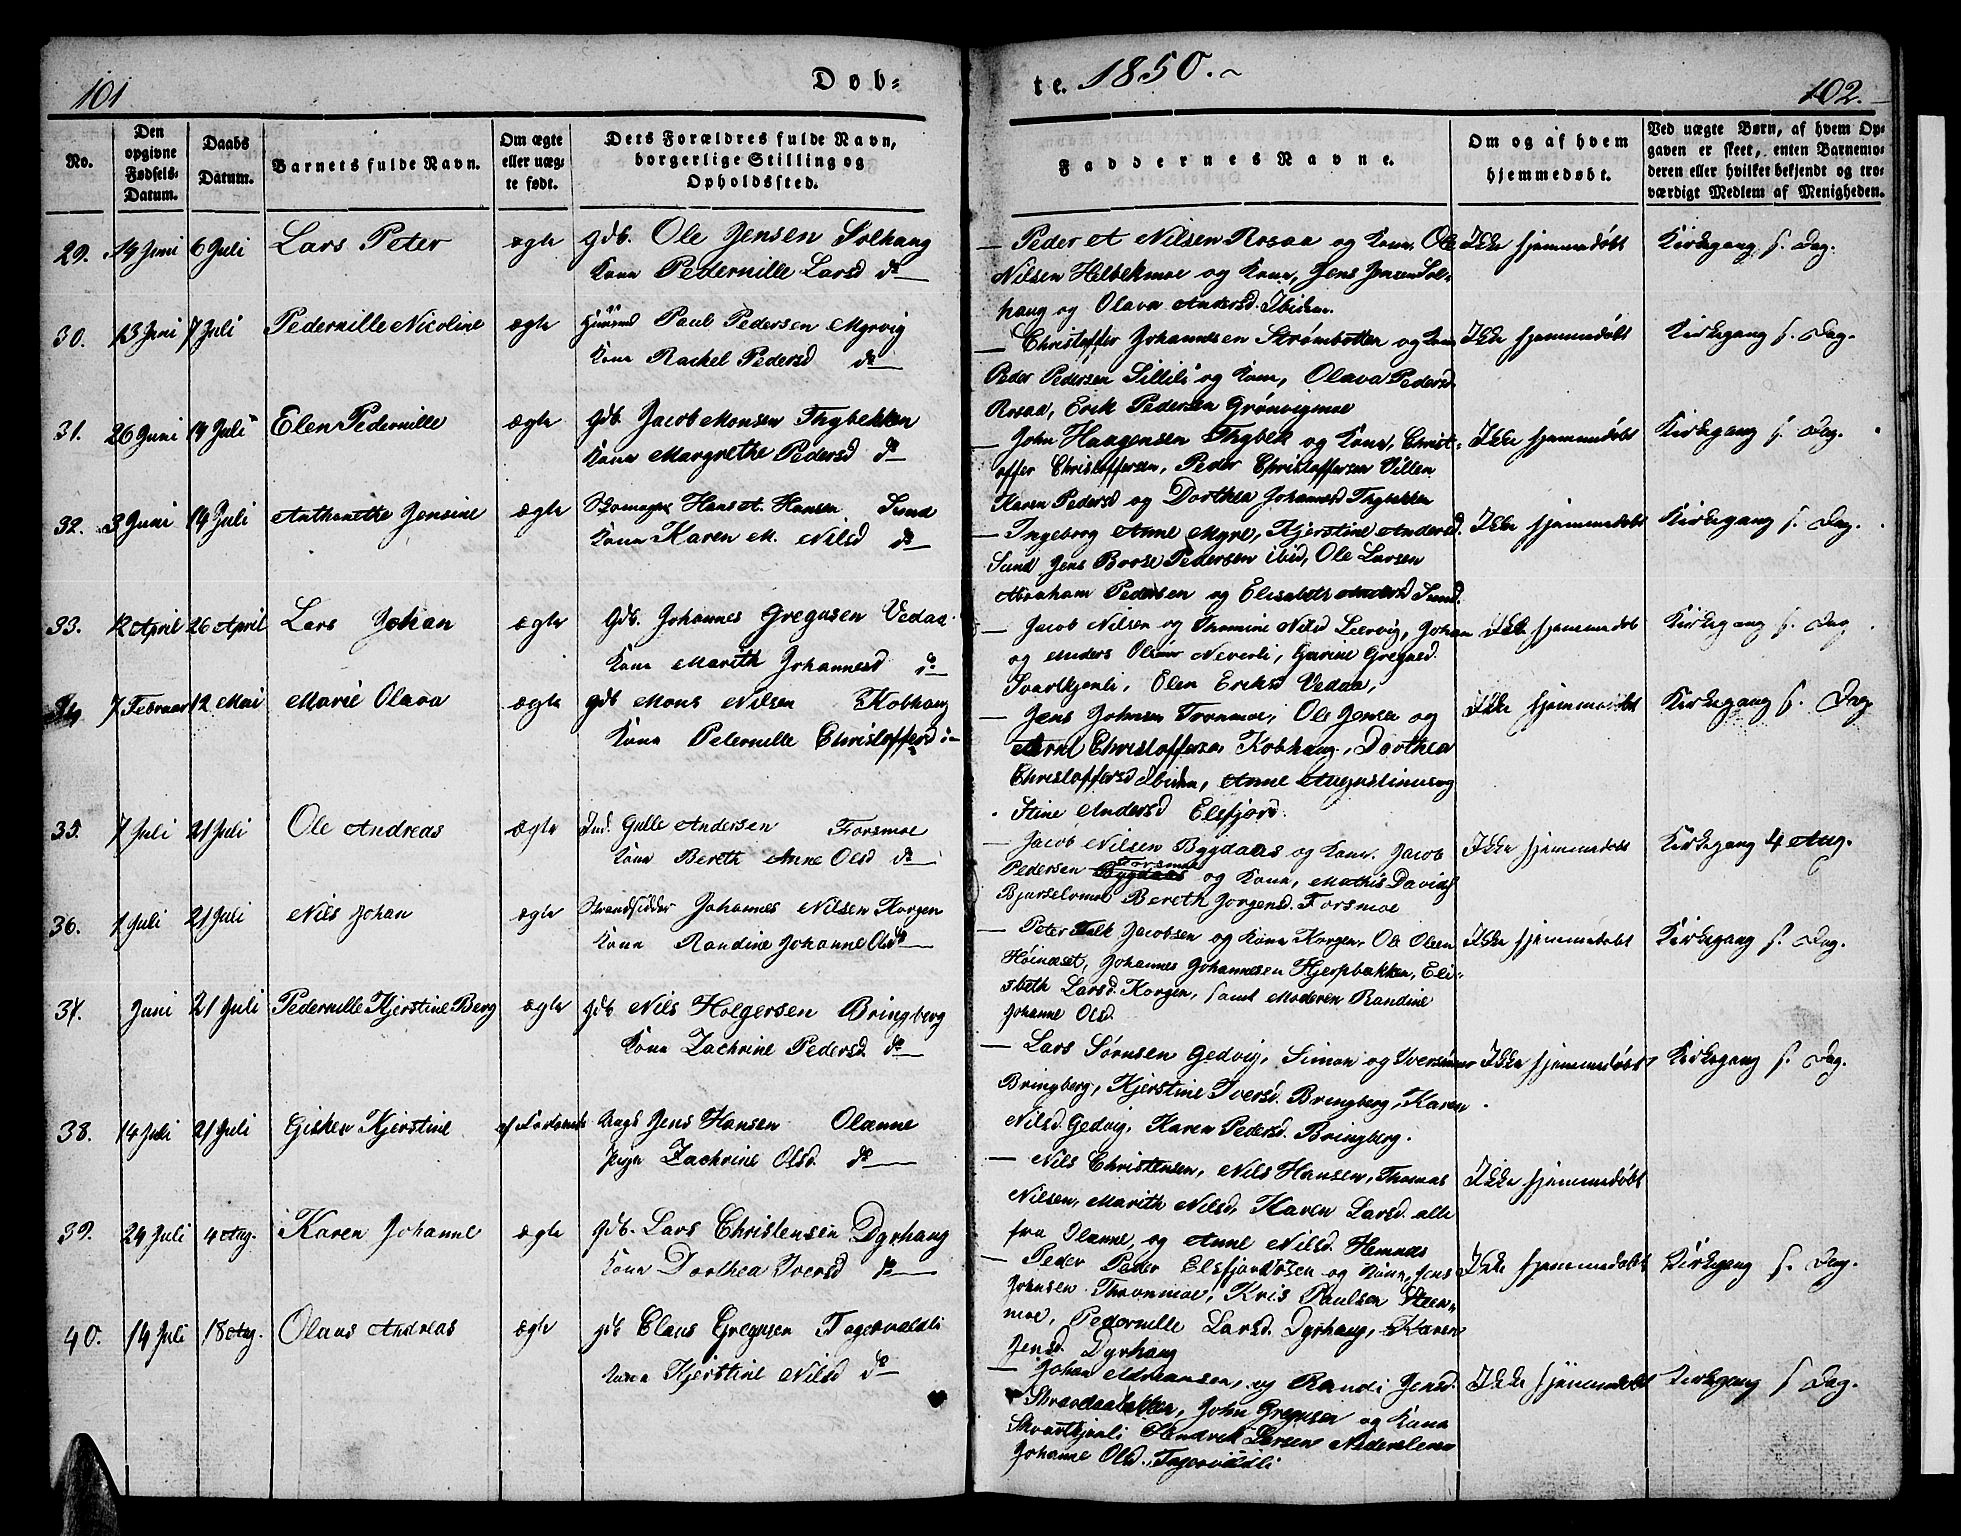 101
Døb=
te. 1850.~
102.
No.
Den opgivne Fødsels-Datum.
Daabs Datum.
Barnets fulde Navn.
Om ægte eller uægte født.
Dets Forældres fulde Navn, borgerlige Stilling og Opholdssted.
Faddernes Navne.
Om og af hvem hjemmedøbt.
Ved uægte Børn, af hvem Opgaven er skeet, enten Barnemoderen eller hvilket bekjendt og troværdigt Medlem af Menigheden.
29. 14 Juni 6 Juli Lars Peter ægte Gdb. Ole Jensen Solhaug
Kone Pedernille Larsd do
— Peder A Nilsen Rosaa og Kone, Ole
Nilsen Helbekmoe og Kone, Jens Jensen Sol-
haug og Olava Andersd. Ibidem.
Ikke hjemmedøbt Kirkegang s. Dag.
30. 13 Juni 7 Juli Pedernille Nicoline ægte Huusmd Paul Pedersen Myrvig
Kone Rachel Pedersd do
— Christoffer Johannesen Strømbotten og Kone
Peder Pedersen Lillili og Kone, Olava Pedersd
Rosaa, Erik Pedersen Grønvigmoe
Ikke hjemmedøbt Kirkegang s. Dag.
31. 26 Juni 14 Juli Elen Pedernille ægte Gdb. Jacob Monsen Thybekken
Kone Margrethe Pedersd do
— John Haagensen Thybek og Kone, Christ-
offer Christoffersen, Peder Christoffersen Villen
Karen Pedersd og Dorthea Johannesd Thybekken
Ikke hjemmedøbt Kirkegang s. Dag.
32. 3 Juni 14 Juli Anthonette Jensine ægte Skomager Hans A. Hansen Sund
Kone Karen M. Nilsd do
— Ingeborg Anne Myre, Kjerstine Andersd.
Sund Jens Brose Pedersen ibid, Ole Larsen
Abraham Pedersen og Elisabeth Andersd Sund.
Ikke hjemmedøbt Kirkegang s. Dag.
33. 12 April 26 April Lars Johan ægte Gdb. Johannes Gregusen Vedaa
Kone Marith Johannesd do
— Jacob Nilsen og Thomine Nilsd Leervig, Johan
og Anders Olsen Neverli, Gurine Gregusd.
Svartkjenli, Elen Eriksd Vedaa,
Ikke hjemmedøbt Kirkegang s. Dag
34 7 Februar 12 Mai Marie Olava ægte Gdb Mons Nilsen Kobhaug
Kone Peternille Christoffersd do
— Jens Johnsen Tronmoe, Ole Jensen og
Arnt Christoffersen Kobhaug, Dorthea
Christoffersd Ibidem, Anne Augustinus og
Stine Andersd Elsfjord.
Ikke hjemmedøbt Kirkegang s. Dag
35. 7 Juli 21 Juli Ole Andreas ægte Ind. Gulle Andersen Forsmoe
Kone Bereth Anne Olsd do
— Jacob Nilsen Bygdaas og Kone. Jacob
Pedersen Bygdaas Forsmoe og Kone, Mathis Davids
Bjurselvmoe Bereth Jørgensd. Forsmoe
Ikke hjemmedøbt Kirkegang 4 Aug.
36. 1 Juli 21 Juli Nils Johan ægte Strandsidder Johannes Nilsen Korgen
Kone Randine Johanne Olsd do
— Peter Falk Jacobsen og Kone Korgen, Ole Olsen
Høinæset, Johannes Johannesen Hjerpbakken, Eli-
sbeth Larsd. Korgen, samt Moderen Randine
Johanne Olsd.
Ikke hjemmedøbt Kirkegang s. Dag.
37. Juni 21 Juli Pedernille Kjerstine Berg ægte Gdb. Nils Holgersen Bringberg
Kone Zachrine Pedersd. do
— Lars Sørnsen Gedvig, Simon og Iver
Bringberg, Kjerstine Iversd. Bringberg, Karen
Nilsd. Gedvig, Karen Pedersd. Bringberg.
Ikke hjemmedøbt Kirkegang s. Dag.
38. 14 Juli 21 Juli Gisken Kjerstine Ungk Jens Hansen Olænne
Pige Zachrine Olsd. do
— Nils Christensen, Nils Hansen, Thomas
Nilsen, Marith Nilsd, Karen Larsd. alle
fra Olænne, og Anne Nilsd. Hemnæs
Ikke hjemmedøbt
39. 24 Juli 4 Aug. Karen Johanne ægte Gdb. Lars Christensen Dyrhaug
Kone Dorthea Iversd do
— Peder Peder Elsfjordosen og Kone, Jens
Johnsen Thronmoe, Kris Paulsen Steen-
moe, Pedernille Larsd. Dyrhaug, Karen
Jensd. Dyrhaug
Ikke hjemmedøbt Kirkegang s. Dag.
40. 14 Juli 18 Aug. Olaus Andreas ægte Gdb Claus Gregusen Fagervoldli
Kone Kjerstine Nilsd do
— Johan Admansen, og Randi Jensd.
Skravdaabakken, John Gregusen og Kone
Skvartkjenli Hendrik Larsen Nederleiren
Johanne Olsd. Fagervoldli
Ikke hjemmedøbt Kirkegang s Dag.